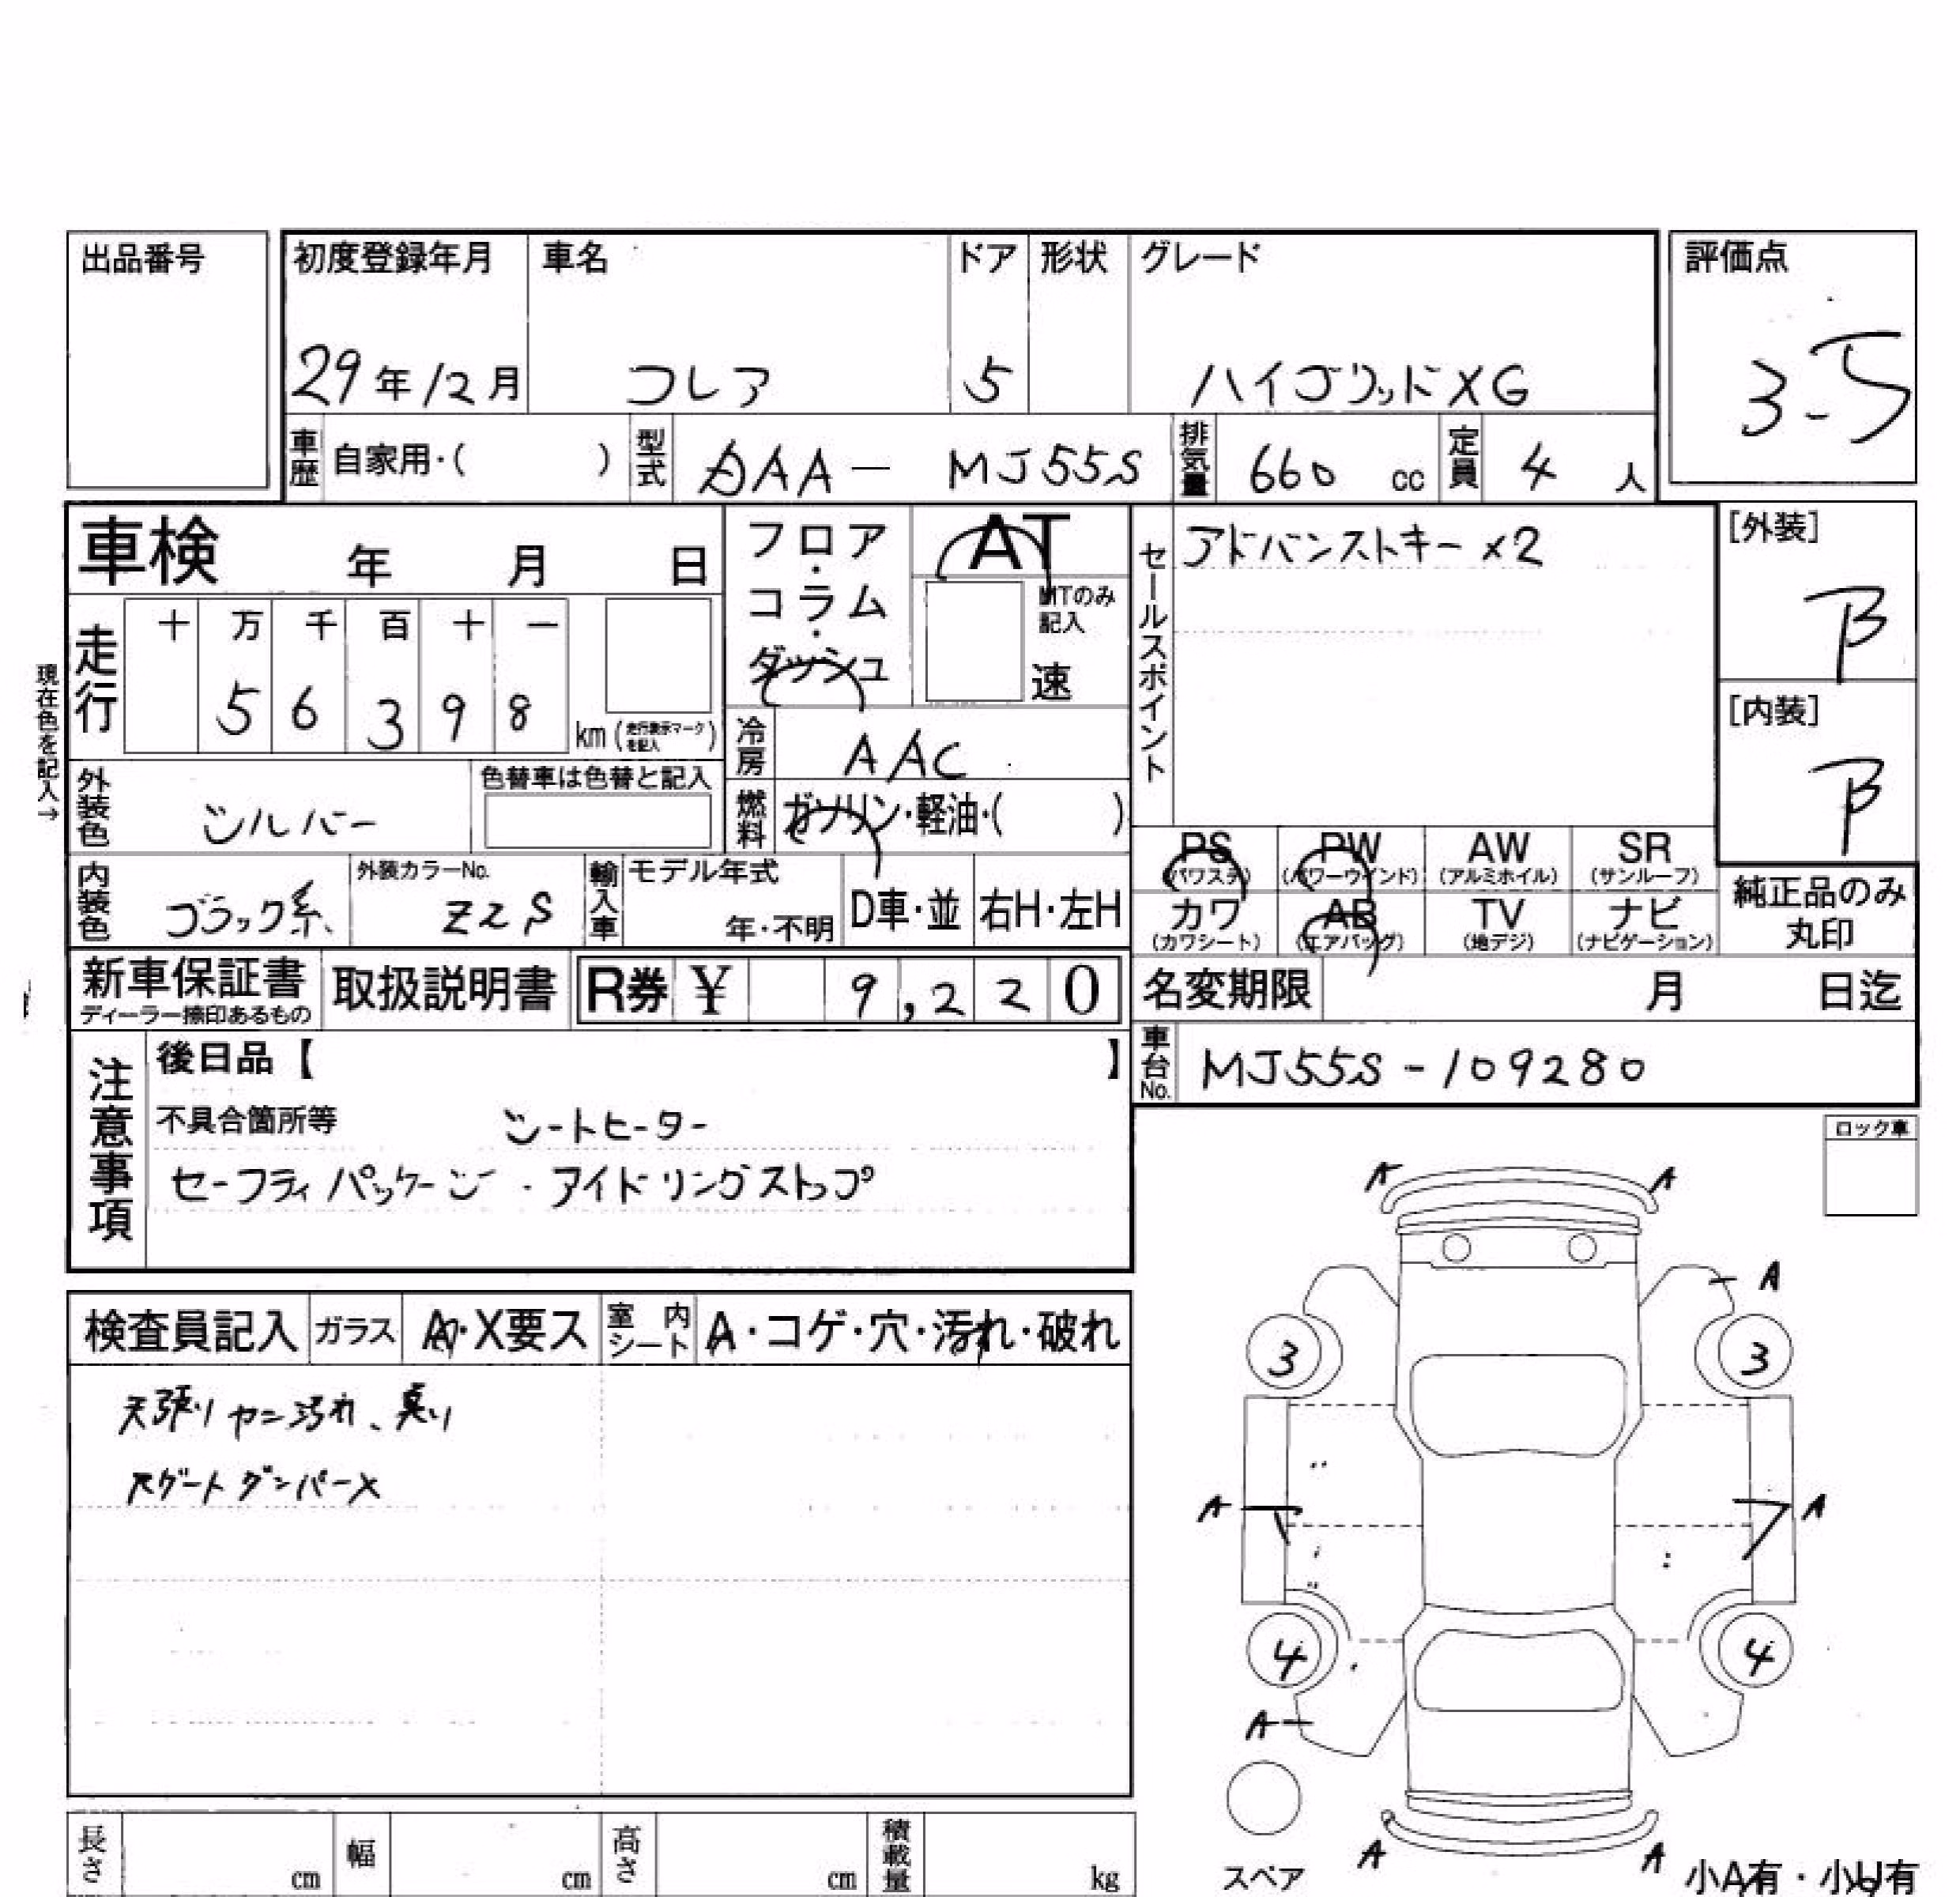 出品番号
初度登録年月 車名 ドア 形状 グレード 評価点
29年12月 フレア 5 ハイブリッドXG 3.5
車歴 自家用・( ) 型式 DAA-MJ55S 排気量 660 cc 定員 4 人
車検 年 月 日
フロア・コラム・ダッシュ
AT
MTのみ記入
速
セールスポイント アドバンストキー×2
[外装] B
現在色を記入→
走行 十 万 千 百 十 一
5 6 3 9 8 km (走行表示マークを記入)
冷房 AAC
[内装] B
外装色 シルバー 色替車は色替と記入
燃料 ガソリン・軽油・( )
PS PW AW SR
(パワステ) (パワーウインド) (アルミホイル) (サンルーフ)
内装色 ブラック系 外装カラーNo. Z2S 輸入車 モデル年式 年・不明 D車・並 右H・左H
カワ AB TV ナビ
(カワシート) (エアバッグ) (地デジ) (ナビゲーション)
純正品のみ
丸印
新車保証書 取扱説明書 R券 ¥ 9,220
ディーラー捺印あるもの
名変期限 月 日迄
車台No. MJ55S-109280
注意事項
後日品【 】
不具合箇所等 シートヒーター
セーフティパッケージ・アイドリングストップ
ロック車
検査員記入 ガラス A・X要ス 室内シート A・コゲ・穴・汚れ・破れ
天張りヤニ汚れ、臭い
Rゲートダンパー×
A A
A
3 3
A A
4 4
A
スペア
A A
小A有・小U有
長さ cm 幅 cm 高さ cm 積載量 kg